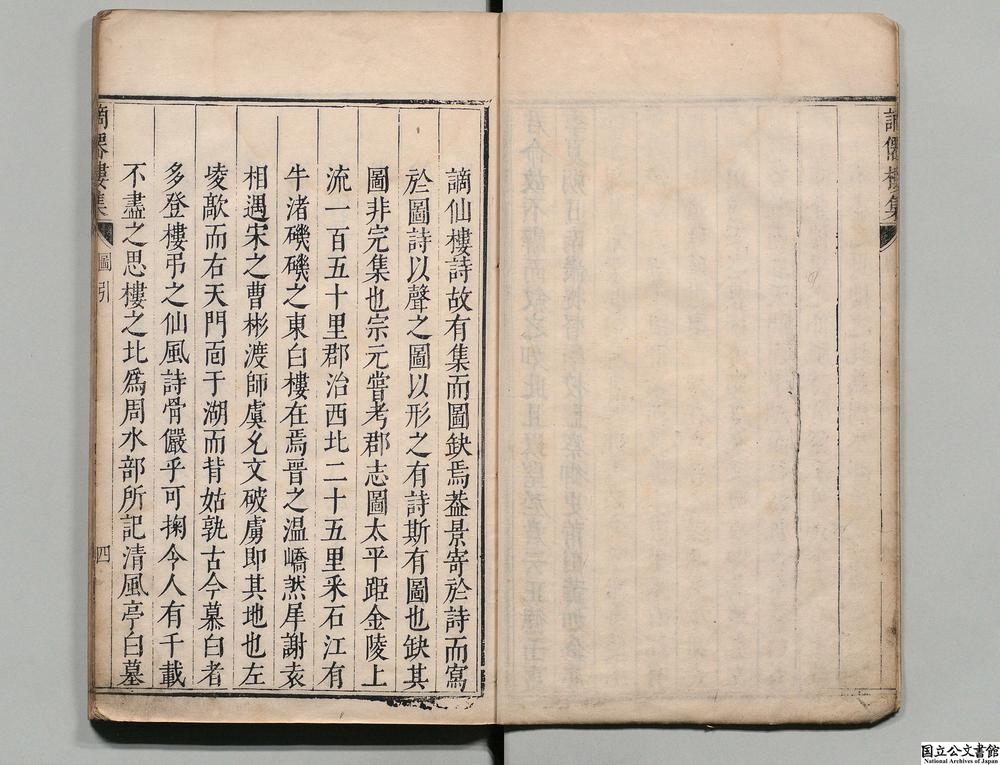 謫僊樓集
謫仙樓詩故有集而圖缺焉葢景寄於詩而寫
於圖詩以聲之圖以形之有詩斯有圖也缺其
圖非完集也宗元嘗考郡志圖太平距金陵上
流一百五十里郡治西北二十五里采石江有
牛渚磯磯之東白樓在焉晉之温嶠燃犀謝袁
相遇宋之曹彬渡師虞允文破虜即其地也左
堎歊而右天門面于湖而背姑孰古今慕白者
多登樓弔之仙風詩骨儼乎可掬令人有千載
不盡之思樓之北爲周水部所記清風亭白墓
謫僊樓集
圖引
四
国立公文書館
National Archives of Japan